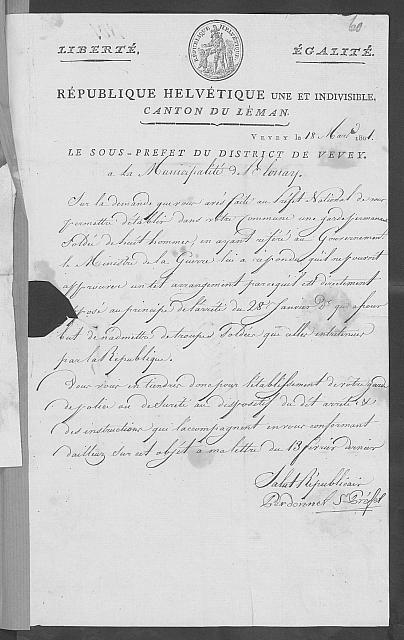 60
RÉPUBLIQUE HELVÉTIQUE
LIBERTÉ, ÉGALITÉ.
RÉPUBLIQUE HELVÉTIQUE UNE ET INDIVISIBLE.
CANTON DU LÉMAN.
VEVEY le 18 Mars 1801.
LE SOUS-PREFET DU DISTRICT DE VEVEY.
a La Municipalité de
Sur la demande que vous avés faite au Préfet National de vous
permettre d'établir dans votre Commune une garde permanente
Soldée de huit hommes, en ayant référé au Gouvernement
le Ministre de la Guerre lui a répondu qu'il ne pouvoit
approuver un tel arrangement parcequ'il est directement
opposé au principe de l'arrêté du 28e Janvier dr qui a pour
but de n'admettre de troupes Soldées que celles entretenues
par la République.
Vous vous en tiendrez donc pour l'établissement de votre garde
de police ou de Sureté au dispositif du dit arrêté &
des instructions qui l'accompagnent en vous conformant
d'ailleurs sur cet objet a ma lettre du 13 février dernier
Salut Républicain
Perdonnet Ss Préfet